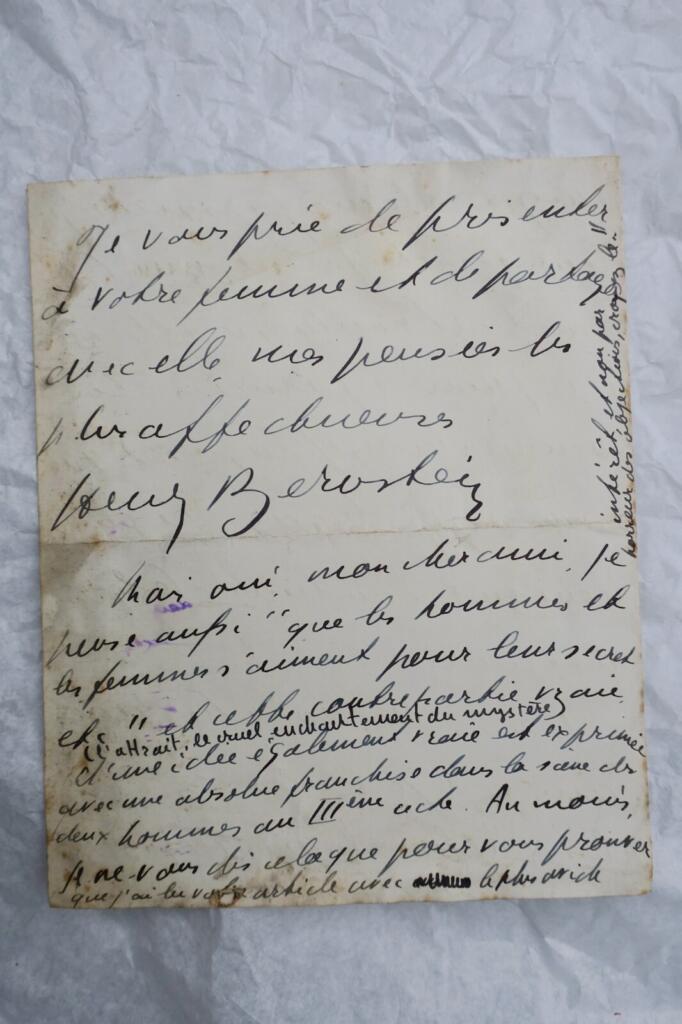 Je vous prie de présenter
à votre femme et de partager
avec elle mes pensées les
plus affectueuses
Henry Bernstein
Mais oui, mon cher ami, je
pense aussi "que les hommes et
les femmes s'aiment pour leur secret
etc" et cette contrepartie vraie
(l'attrait, le cruel enchantement du mystère)
d'une idée également vraie est exprimée
avec une absolue franchise dans la scène des
deux hommes au IIIème acte. Au moins,
je ne vous dis cela que pour vous prouver
que j'ai lu votre article avec le plus avide
intérêt et non par
horreur des objections, croyez-le.